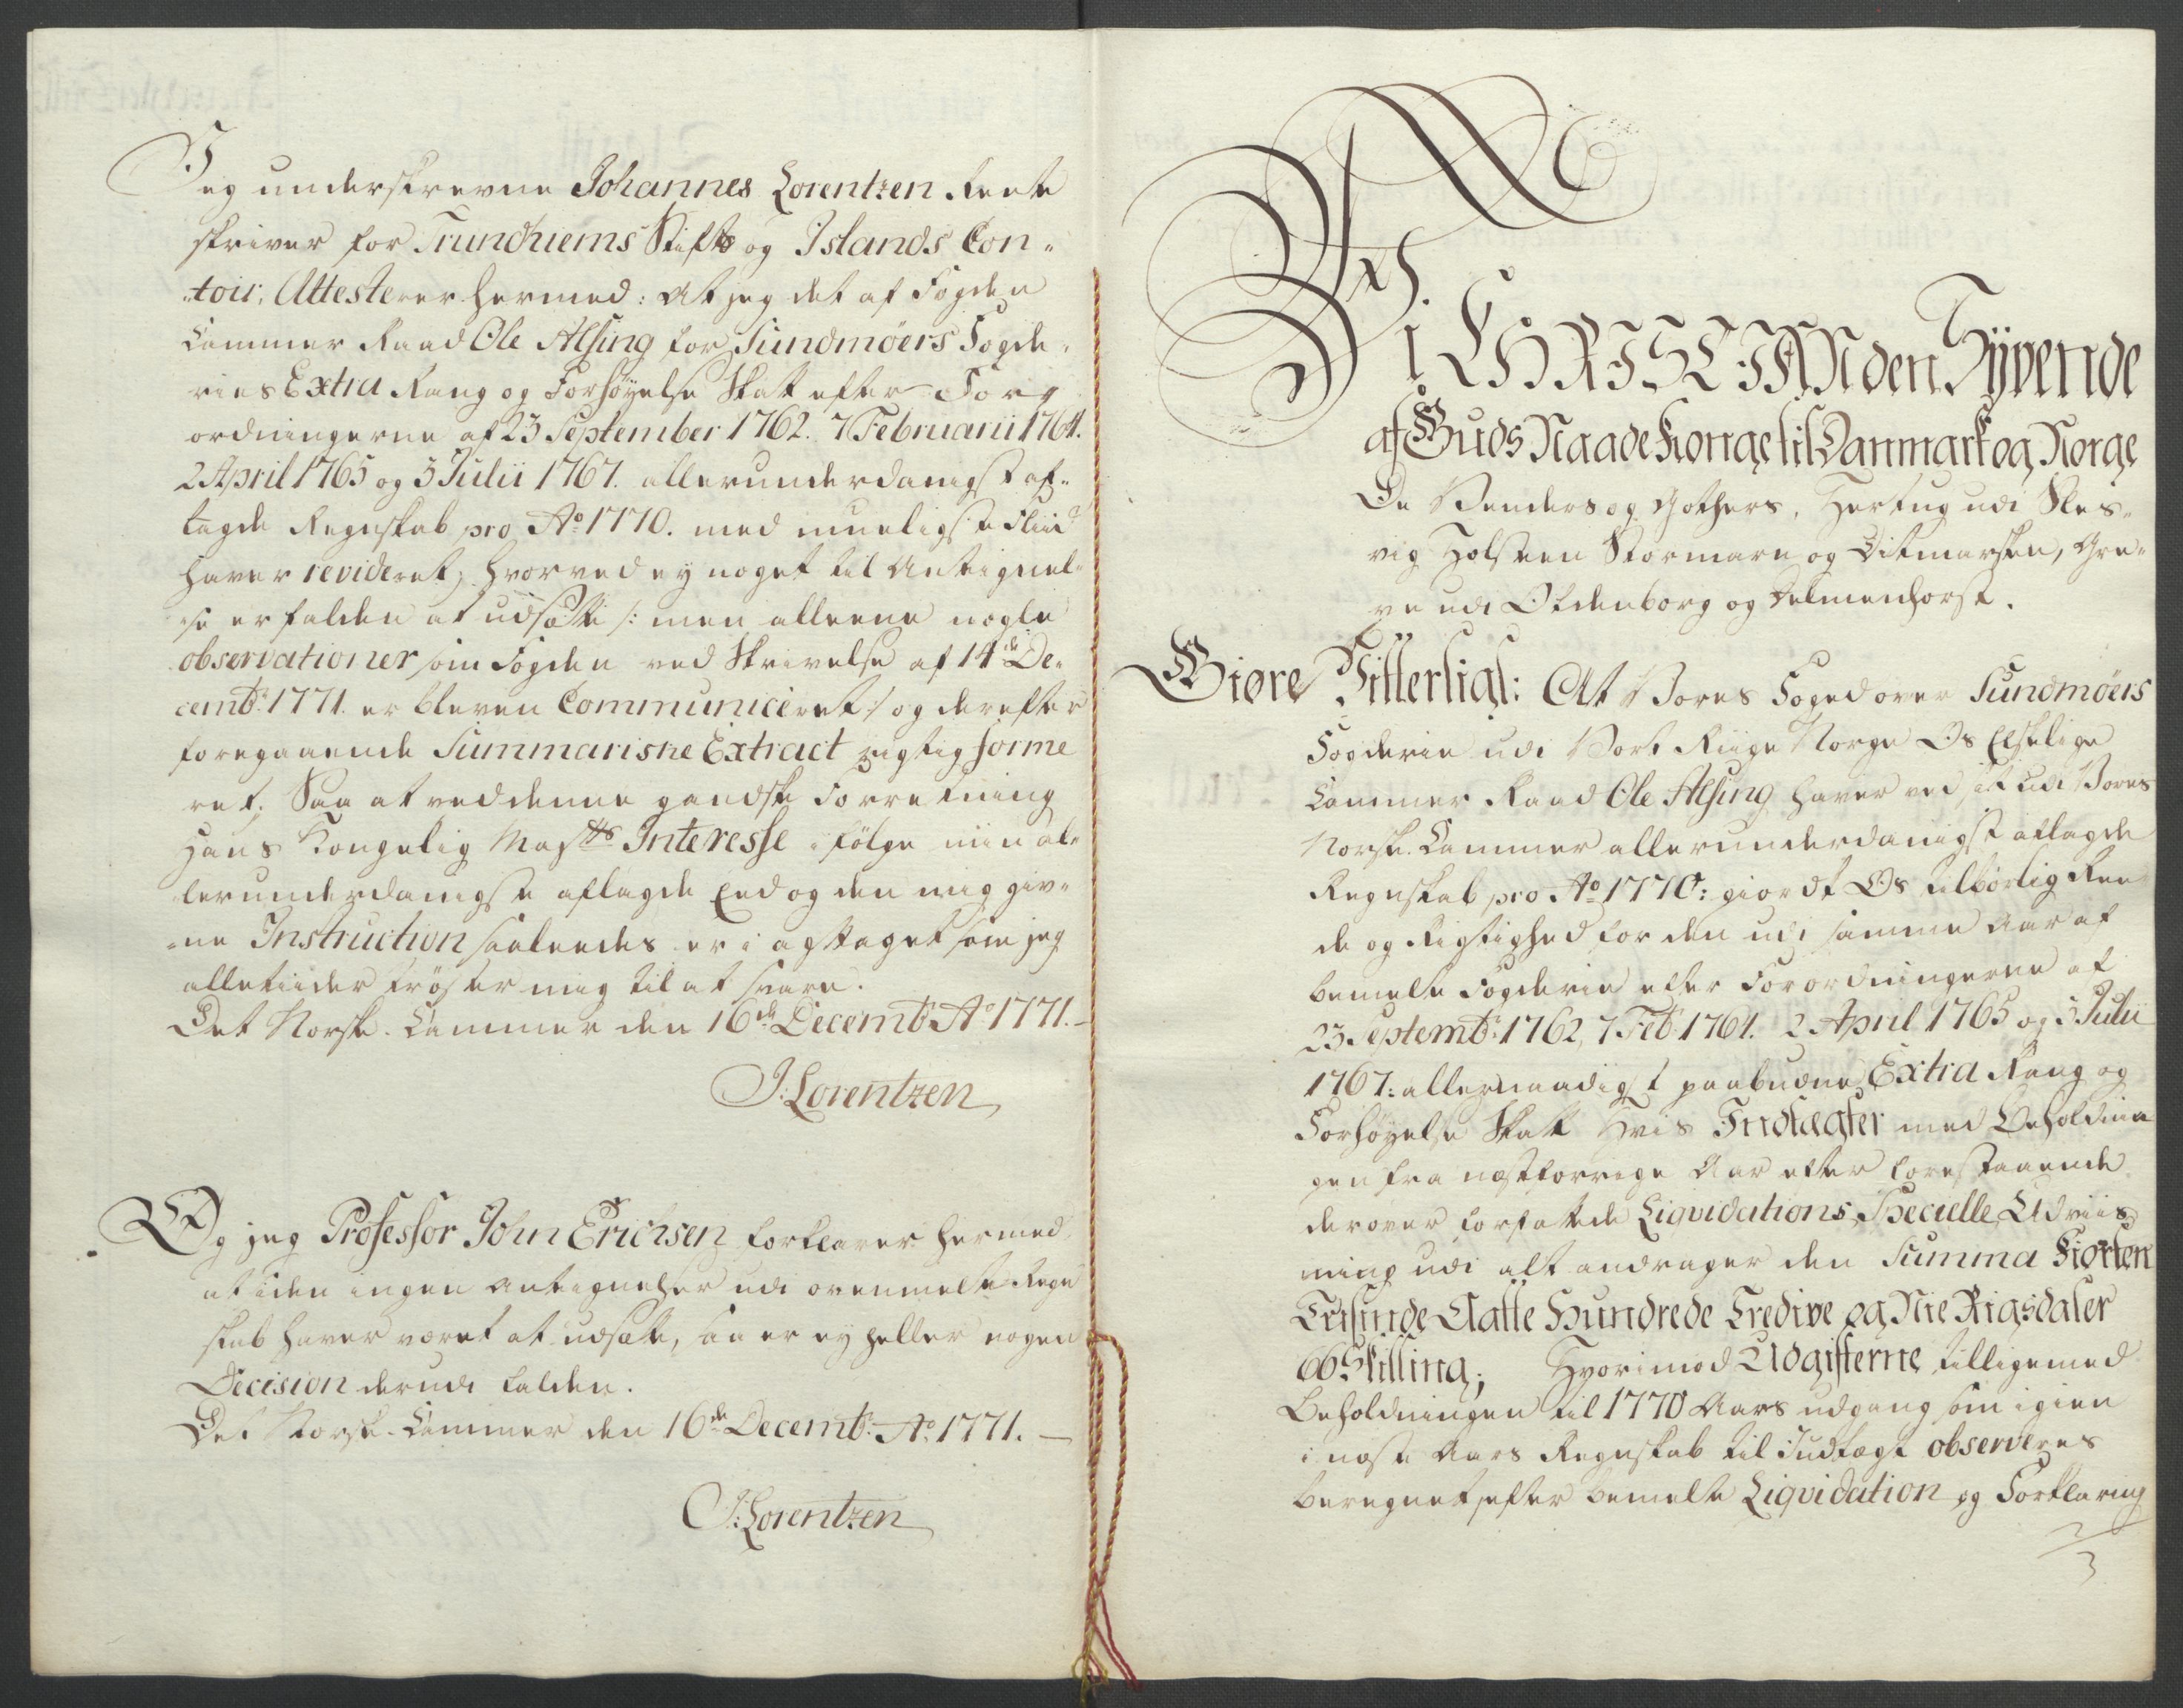 Jeg underskrevne Johannes Lorentzen Rente
skriver for Trundhiems Stifts og Islands Con-
toir; Attesterer hermed: At jeg det af Fogden
Cammer Raad Ole Alsing for Sundmøers Fogde-
ries Extra Rang og Forhøyelse Skatt efter For-
ordningerne af 23 September 1762. 7 Februarii 1764.
2 April 1765 og 3 Julii 1767. allerunderdanigst af-
lagde Regnskab pro Ao. 1770. med mueligste Fliid
haver revideret, hvorved ey noget til Antegnel-
se er falden at udsætte /: men alleene nogle
observationer som Fogden ved Skrivelse af 14de De-
cembr. 1771. er bleven Communiceret :/ og derefter
foregaaende Summariske Extract rigtig forme
ret. Saa at ved denne gandske Forretning
Hans Kongelig Mayts Interesse i følge min al-
lerunderdanigste aflagde Eed og den mig giv-
ne Instruction saaleedes er i agttaget som jeg
alletiider trøster mig til at svare.
Det Norske Cammer den 16de Decembr Ao 1771.
J: Lorentzen
Og jeg Professor John Erichsen forklarer hermed,
at siden ingen Antegnelser udi ovenmelte Regn
skab haver været at udsætte, saa er ey heller nogen
Decision derudi falden.
Det Norske Cammer den 16de Decembr. Ao. 1771.
J: Lorentzen
Vi CHRISTIAN den Syvende
af Guds Naade Konge til Danmark og Norge
De Venders og Gothers, Hertug udi Sles-
vig Holsteen Stormarn og Ditmarsken, Gre-
ve udi Oldenborg og Delmenhorst.
Giøre Vitterligt: At Vores Foged over Sundmøers
Fogderie udi Vort Riige Norge Os Elskelige
Cammer Raad Ole Alsing haver ved sit udi Vores
Norske Cammer allerunderdanigst aflagde
Regnskab pro Ao 1770: giordt Os tilbørlig Ree-
de og Rigtighed for den udi samme Aar af
bemelte Fogderie efter Forordningerne af
23 Septembr. 1762, 7 Feb. 1764. 2 April 1765 og 3 Julii
1767: allernaadigst paabudne Extra Rang og
Forhøyelse Skatt Hvis Indtægter med Beholdnin
gen fra næstforrige Aar efter forestaaende
derover forfattede Liqvidations Specielle Udviis
ning udi alt andrager den Summa Fiorten
Tusinde Aatte Hundrede Tredive og Nie Rigsdaler
66 Skilling; Hvorimod Udgifterne tilligemed
Beholdningen til 1770 Aars udgang som igien
i næste Aars Regnskab til Indtægt observeres
beregnet efter bemelte Liqvidation og Forklaring